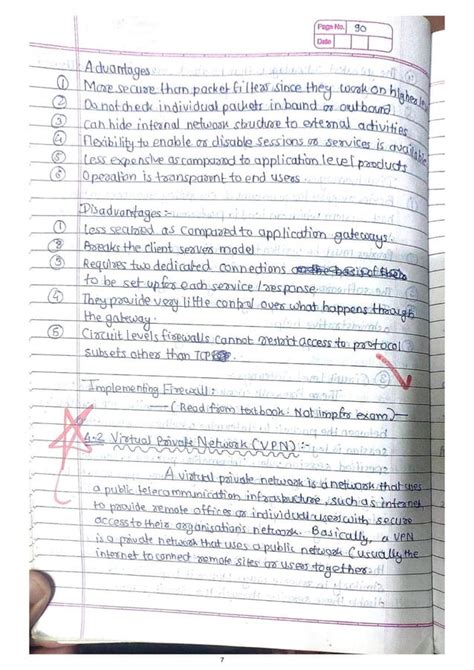 Page No. 90
Date
Advantages
① More secure than packet filters since they work on higher
② Do not check individual packets inbound or outbound
③ Can hide internal network structure to external activities
④ Flexibility to enable or disable sessions or services is available
⑤ Less expensive as compared to application level products
⑥ Operation is transparent to end users.
Disadvantages :-
① Less secured as compared to application gateways.
② Breaks the client server model
③ Requires two dedicated connections
to be set up for each service / response.
④ They provide very little control over what happens through
the gateway.
⑤ Circuit levels firewalls cannot restrict access to protocol
subsets other than TCP
Implementing Firewall:
—( Read from textbook. Not imp for exam)—
4.2 Virtual Private Network (VPN) :-
A virtual private network is a network that uses
a public telecommunication infrastructure, such as internet
to provide remote offices or individual users with secure
access to their organisation's network. Basically, a VPN
is a private network that uses a public network (usually the
internet to connect remote sites or users together.
7